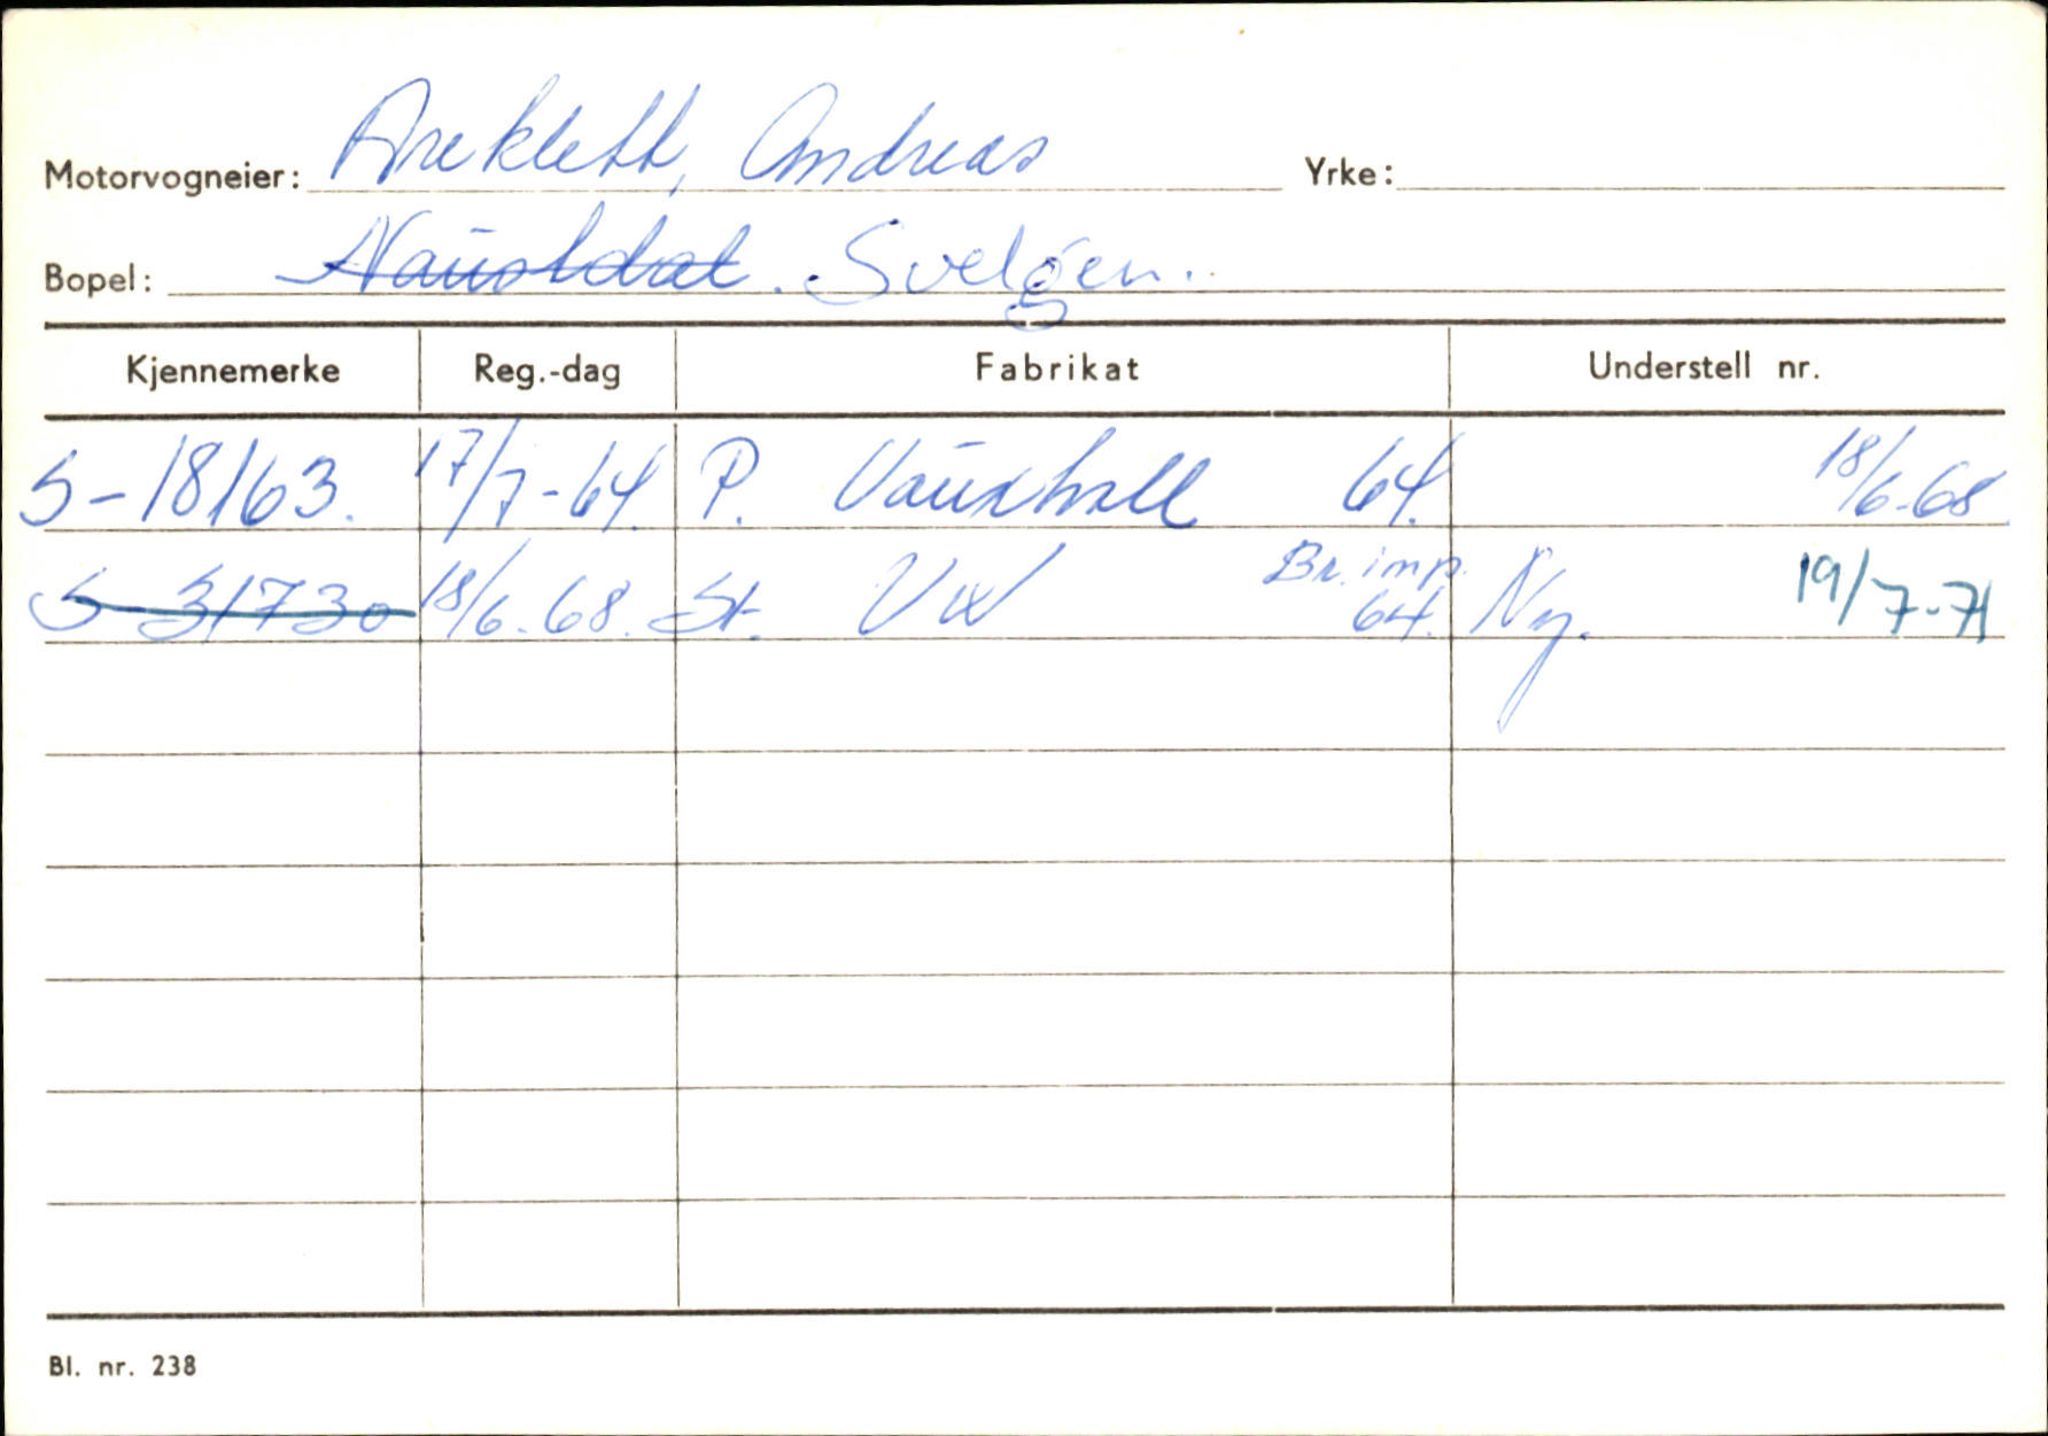 Motorvogneier: Areklett, Andreas Yrke:
Bopel: Naustdal. Svelgen.
Kjennemerke Reg.-dag Fabrikat Understell nr.
S-18163. 17/7-64. P. Vauxhall 64. 18/6-68
S-31730 18/6-68. St. VW Br. imp. 64. Ny. 19/7-71
Bl. nr. 238